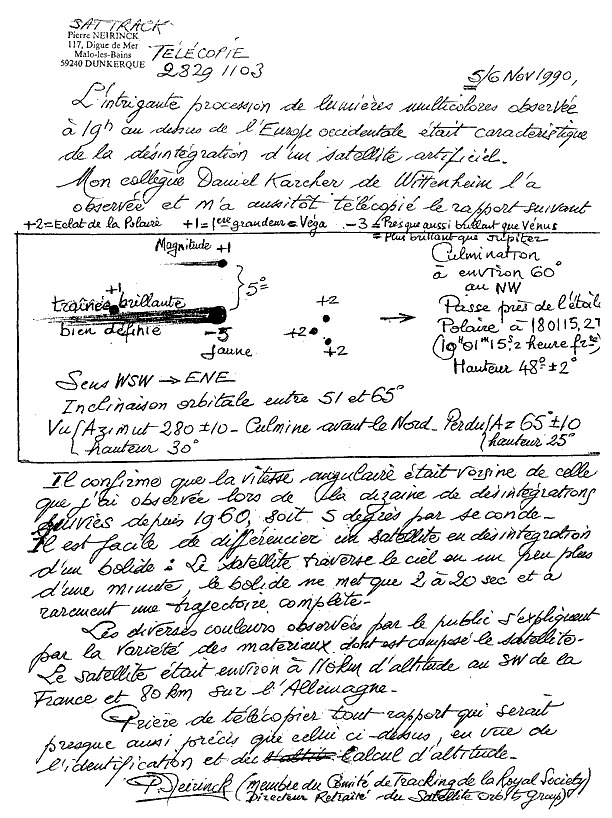 SATTRACK
Pierre NEIRINCK
117, Digue de Mer
Malo-les-Bains
59240 DUNKERQUE
TÉLÉCOPIE
2829 1103
5/6 Nov 1990,
L'intrigante procession de lumières multicolores observée
à 19h au dessus de l'Europe occidentale était caractéristique
de la désintégration d'un satellite artificiel.
Mon collègue Daniel Karcher de Wittenheim l'a
observée et m'a aussitôt télécopié le rapport suivant
+2=Eclat de la Polaire +1=1ere grandeur=Véga -3=Presque aussi brillant que Vénus
=Plus brillant que Jupiter
Magnitude +1
5°
+1
traînée brillante
bien définie
-3
Jaune
+2
+2
+2
Culmination
à environ 60°
au NW
Passe près de l'étoile
Polaire à 180115,27
(19H01m15s,2 heure frse)
Hauteur 48°±2°
Sens WSW → ENE
Inclinaison orbitale entre 51 et 65°
Vu Azimut 280±10 - Culmine avant le Nord - Perdu Az 65°±10
hauteur 30° hauteur 25°
Il confirme que la vitesse angulaire était voisine de celle
que j'ai observée lors de la dizaine de désintégrations
suivies depuis 1960, soit 5 degrés par seconde.
Il est facile de différencier un satellite en désintégration
d'un bolide: Le satellite traverse le ciel en un peu plus
d'une minute, le bolide ne met que 2 à 20 sec et a
rarement une trajectoire complète.
Les diverses couleurs observées par le public s'expliquent
par la variété des materiaux dont est composé le satellite.
Le satellite était environ à 110km d'altitude au SW de la
France et 80km sur l'Allemagne.
Prière de télécopier tout rapport qui serait
presque aussi précis que celui ci-dessus, en vue de
l'identification et du calcul d'altitude.
P. Neirinck (membre du Comité de Tracking de la Royal Society)
Directeur Retraité du Satellite Orbits Group)